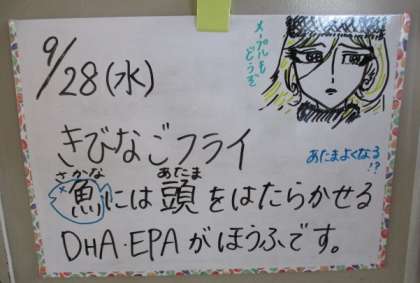 9/28(水)
メープルも
どうぞ
きびなごフライ
あたまよくなる
!?
さかな あたま
魚には頭をはたらかせる
DHA・EPAがほうふです。